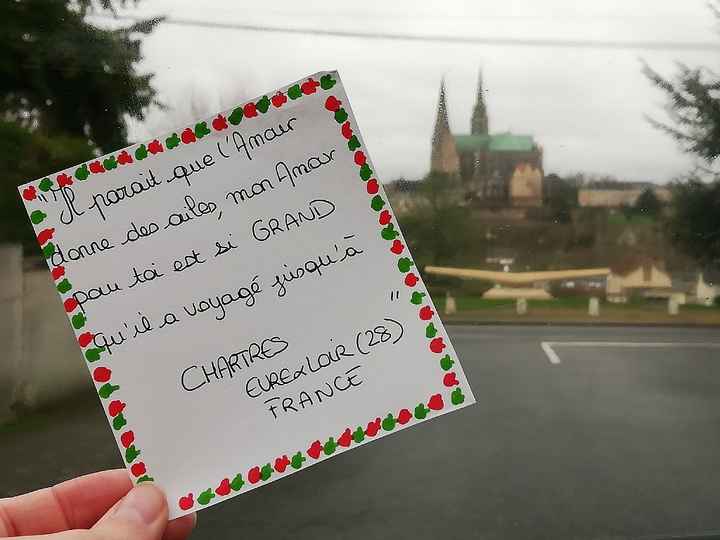 "Il parait que l'Amour
donne des ailes, mon Amour
pour toi est si GRAND
qu'il a voyagé jusqu'à "
CHARTRES
EURE&LOIR (28)
FRANCE